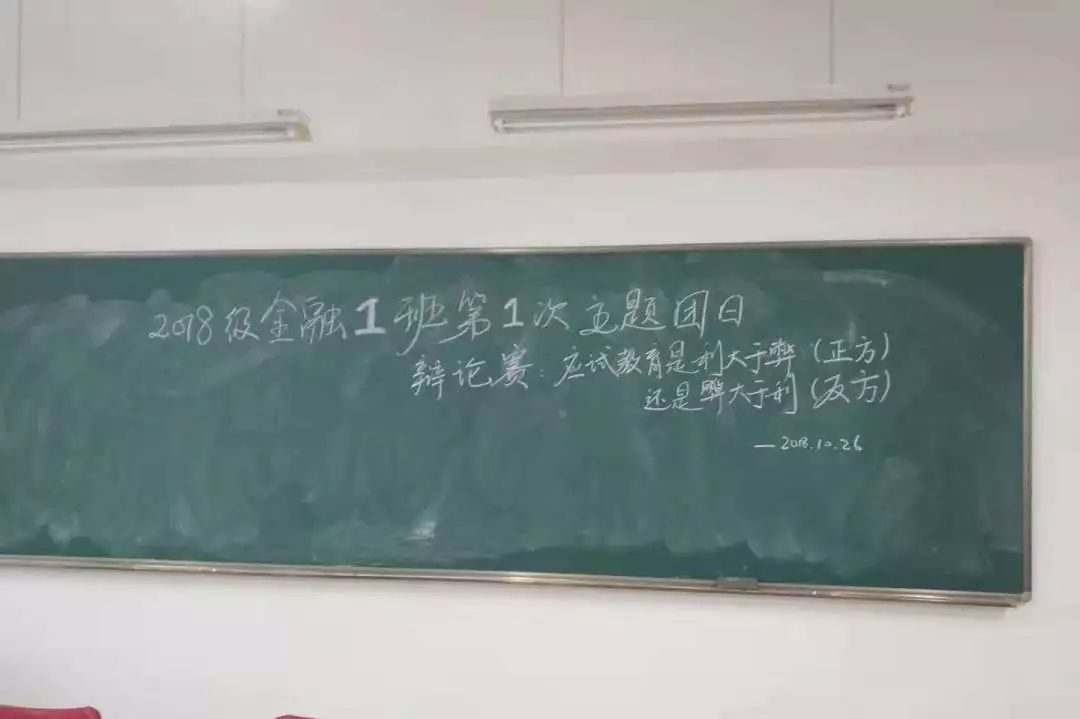 2018级金融1班第1次主题团日
辩论赛:应试教育是利大于弊(正方)
还是弊大于利(反方)
—2018.10.26